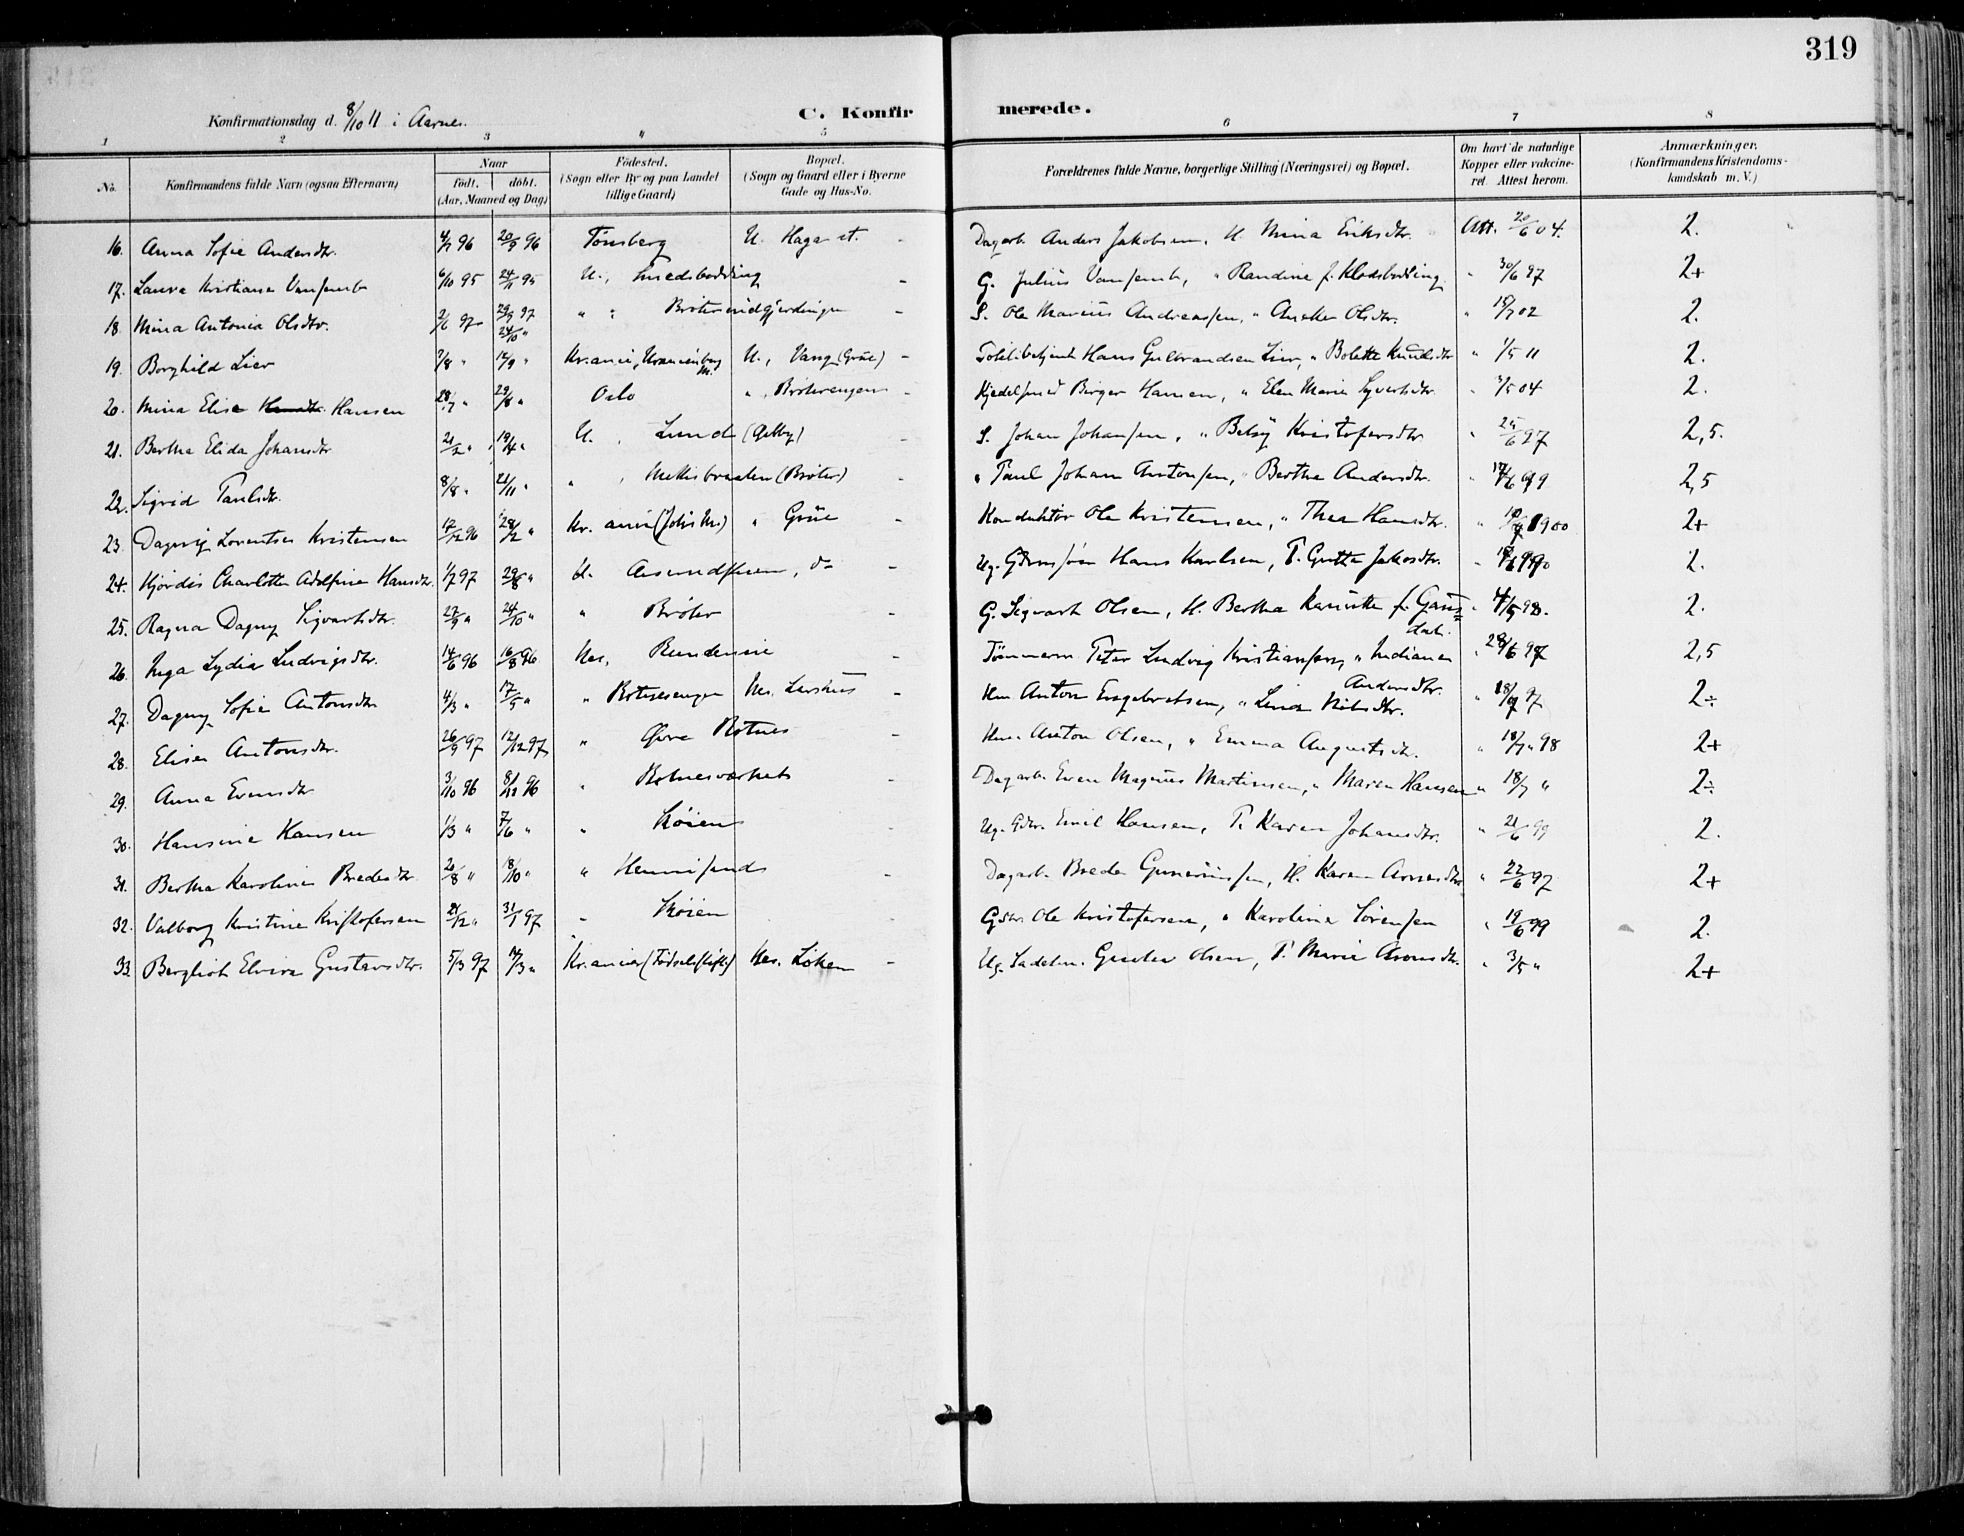 319
Konfirmationsdag d. 8/10 11 i Aarnes.
C. Konfirmerede.
1 2 3 " 5 6 7 8
No. Konfirmandens fulde Navn (ogsaa Efternavn) Naar født. døbt. (Aar, Maaned og Dag) Fødested. (Sogn eller By og paa Landet tillige Gaard) Bopæl. (Sogn og Gaard eller i Byerne Gade og Hus-No. Forældrenes fulde Navne, borgerlige Stilling (Næringsvei) og Bopæl. Om havt de naturlige Kopper eller vakcineret. Attest herom. Anmærkninger. (Konfirmandens Kristendomskundskab m. V.)
16. Anna Sofie Andersdtr. 4/7 96 20/9 96 Tønsberg U. Haga st. - Dagarb. Anders Jakobsen, H. Mina Eriksdtr. Att. 20/6 04. 2.
17. Laura Kristiane Vansemb 6/10 95 24/11 95 U., Smedsbødding - G. Julius Vansemb, " Randine f. Klodsbødding " 30/6 97 2+
18. Mina Antonia Olsdtr. 2/6 97 29/9 97 24/10 " " " - S. Ole Marius Andreassen, " Aneke Olsdtr. " 15/7 02 2.
19. Borghild Lier 7/8 " 12/9 " Kr.ania, Uranienborg M. U., Vang (Grue) - Toldbetjent Hans Gulbrandsen Lier, " Bolette Knudsdtr " 1/5 11 2.
20. Mina Elise Hansen 28/7 " 29/8 " Oslo " , Brøterengen - Kjedelsmed Birger Hansen, " Elen Marie Syvertsdtr. " 3/5 04 2.
21. Bertha Elida Johansdtr 21/2 " 19/4 " U. , Lund (Gilby) - S. Johan Johansen, " Betsy Kristofersdtr " 25/6 97 2,5.
22. Sigrid Paulsdtr. 8/8 " 21/11 " " , (Brøter) - " Paul Johan Antonsen, " Berthe Andersdtr. " 17/6 99 2,5
23. Dagny Lorentse Kristensen 17/12 96 28/2 " Kr.ania (Johs M.) " Grue - Konduktør Ole Kristensen, " Thea Hansdtr. " 1900 2+
24. Hjørdis Charlotte Adolfine Hansdtr. 1/7 97 29/8 " U. Aasmundsheim, do - Ug. Gdmsøn Hans Karlsen, P. Gutta Jakobsdtr. " 2.
25. Ragna Dagny Sigvartsdtr. 27/9 " 24/10 " " Brøter - G. Sigvart Olsen, H. Berthe f. Gausdal. " 2.
26. Inga Lydia Ludvigsdtr. 14/6 96 16/8 96 Nes, - Tømmerm. Peter Ludvig Kristiansen, " Indiane Andersdtr. " 97 2,5
27. Dagny Sofie Antonsdtr 4/3 " 17/5 " " Nes. - Hm Anton Engebretsen, " Lina Nilsdtr. " 18/7 97 2÷
28. Elise Antonsdtr. 26/9 97 12/12 97 " Øvre Rotnes - Hm. Anton Olsen, " Emma Augustsdtr. " 18/7 98 2+
29. Anna Evensdtr 3/10 96 8/11 96 " Rotnesværket - Dagarb. Even Magnus Martinsen, " Maren Hansen " 18/7 " 2÷
30. Hansine Hansen 1/3 " 7/6 " " Skøien - Ug. Gdbr. Emil Hansen, P. Karen Johansdtr. " 21/6 99 2.
31. Bertha Karoline Bredesdtr. 20/8 " 18/10 " " Hennisund - Dagarb. Brede Gunerius­sen, H. Karen Arnesdtr " 22/6 97 2+
32. Valborg Kristine Kristofersen 21/12 " 31/1 97 " Skøien - Gdbr. Ole Kristofersen, " Karoline Sørensen " 19/6 99 2.
33. Bergliot Elvira Gustavsdtr. 5/3 97 /3 " Kr.ania (Fødselsstift.) Nes. Løken - Ug. Sadelm. Gustav Olsen, P. Marie Aronsdtr. " 3/5 " 2+